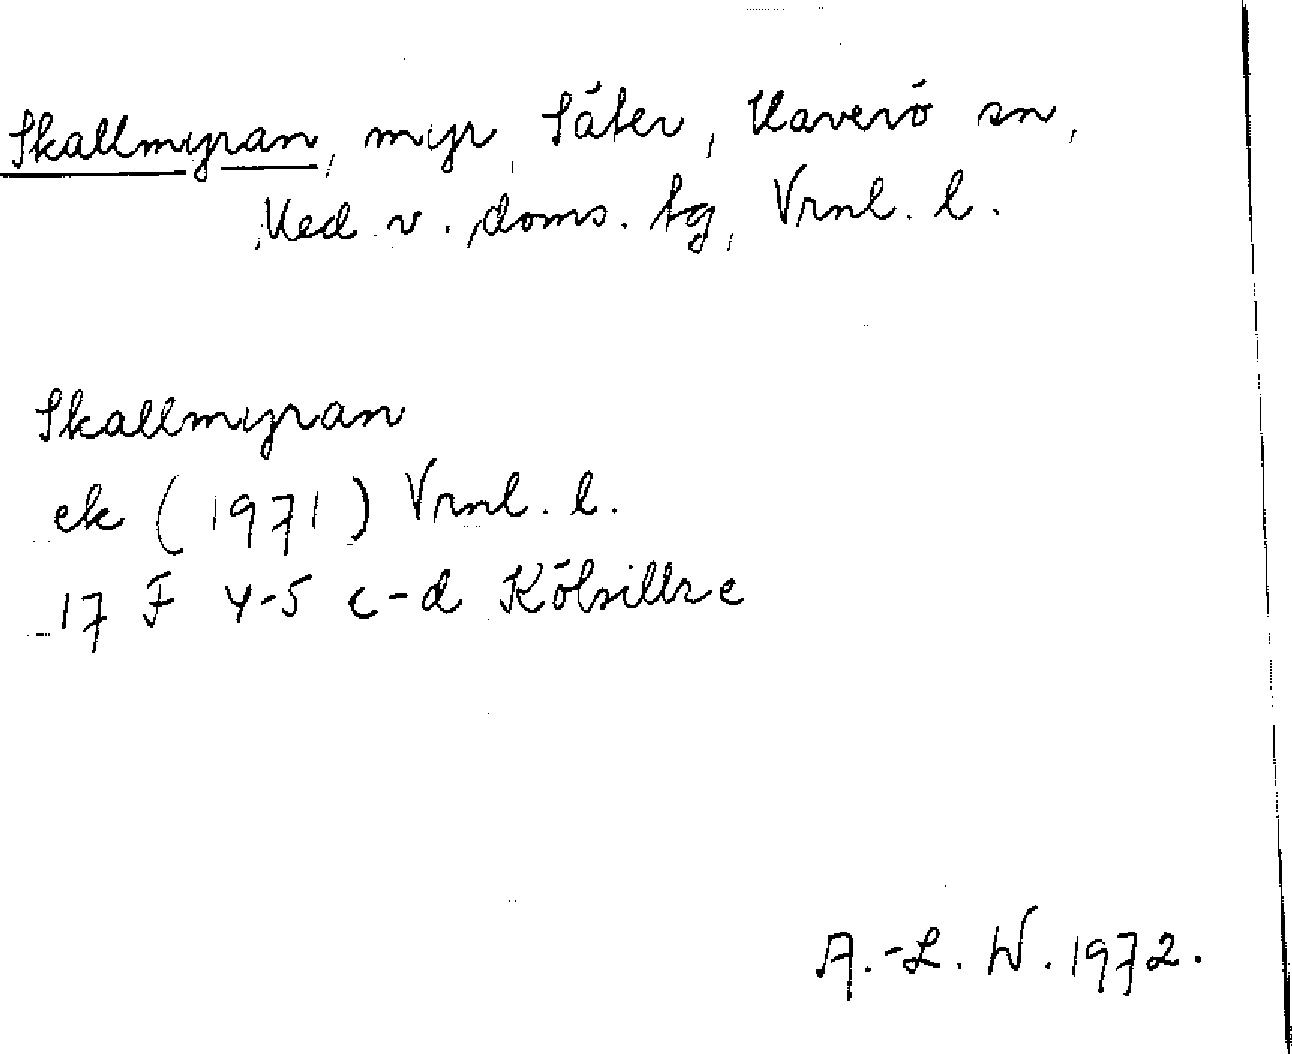 Skallmyran, myr, Säter, Haverö sn,
Med. v. doms. tg, Vrnl. l.
Skallmyran
ek (1971) Vrnl. l.
17 F 4-5 c-d Kölsillre
A.-L. W. 1972.